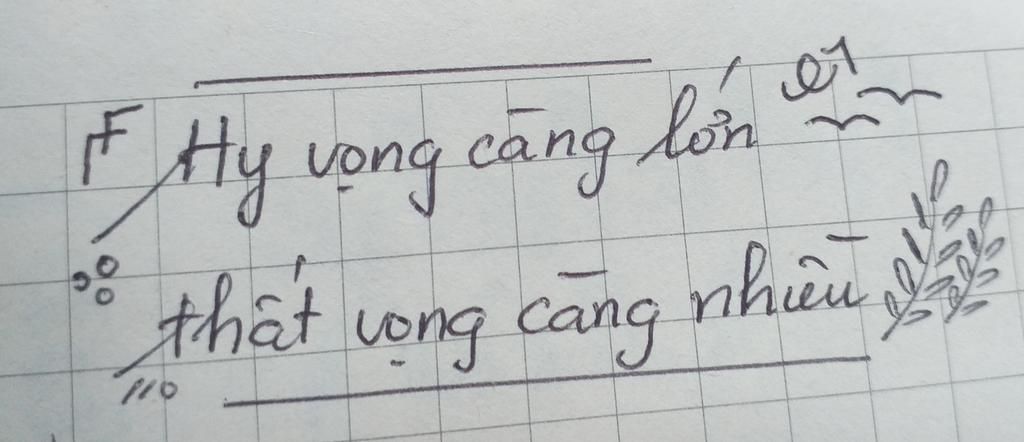 Hy vọng càng lớn
thất vọng càng nhiều